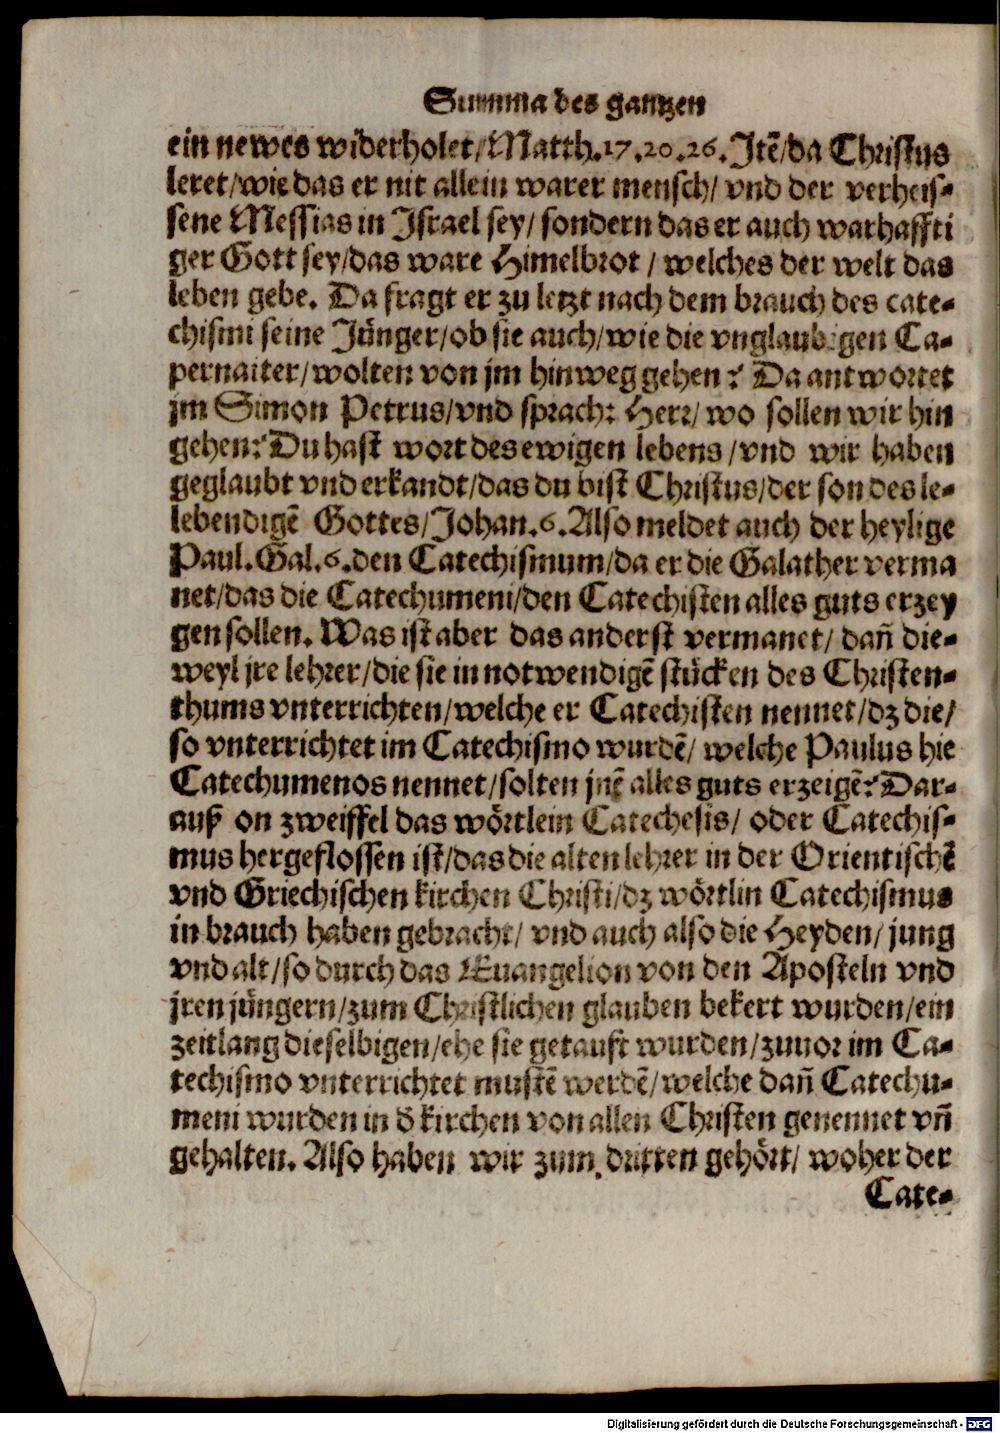 Summa des gantzen
ein newes widerholet/Matth.17.20.26.Jtẽ/da Christus
leret/wie das er nit allein warer mensch/ vnd der verheis-
sene Messias in Israel sey/ sondern das er auch warhaffti
ger Gott sey/das ware Himelbrot / welches der welt das
leben gebe. Da fragt er zu letzt nach dem brauch des cate-
chismi seine Jünger/ob sie auch/wie die vnglaubigen Ca-
pernaiter/wolten von jm hinweg gehen? Da antwortet
jm Simon Petrus/vnd sprach: Herr/ wo sollen wir hin
gehen? Du hast wort des ewigen lebens /vnd wir haben
geglaubt vnd erkandt/das du bist Christus/der son des le-
lebendigẽ Gottes/Johan.6.Also meldet auch der heylige
Paul.Gal.6.den Catechismum/da er die Galather verma
net/das die Catechumeni/den Catechisten alles guts erzey
gen sollen. Was ist aber das anderst vermanet/ dañ die-
weyl jre lehrer/die sie in notwendigẽ stücken des Christen-
thums vnterrichten/welche er Catechisten nennet/dz die/
so vnterrichtet im Catechismo wurdẽ/ welche Paulus hie
Catechumenos nennet/solten jnẽ alles guts erzeigẽ? Dar-
auß on zweiffel das wörtlein Catechesis/ oder Catechis-
mus hergeflossen ist/das die alten lehrer in der Orientischẽ
vnd Griechischen kirchen Christi/dz wörtlin Catechismus
in brauch haben gebracht/ vnd auch also die Heyden/ jung
vnd alt/so durch das Euangelion von den Aposteln vnd
jren jüngern/zum Christlichen glauben bekert wurden/ein
zeitlang dieselbigen/ehe sie getauft wurden/zuuor im Ca-
techismo vnterrichtet mustẽ werdẽ/welche dañ Catechu-
meni wurden in d̄ kirchen von allen Christen genennet vñ
gehalten. Also haben wir zum dritten gehört/ woher der
Cate-
Digitalisierung gefördert durch die Deutsche Forschungsgemeinschaft - DFG